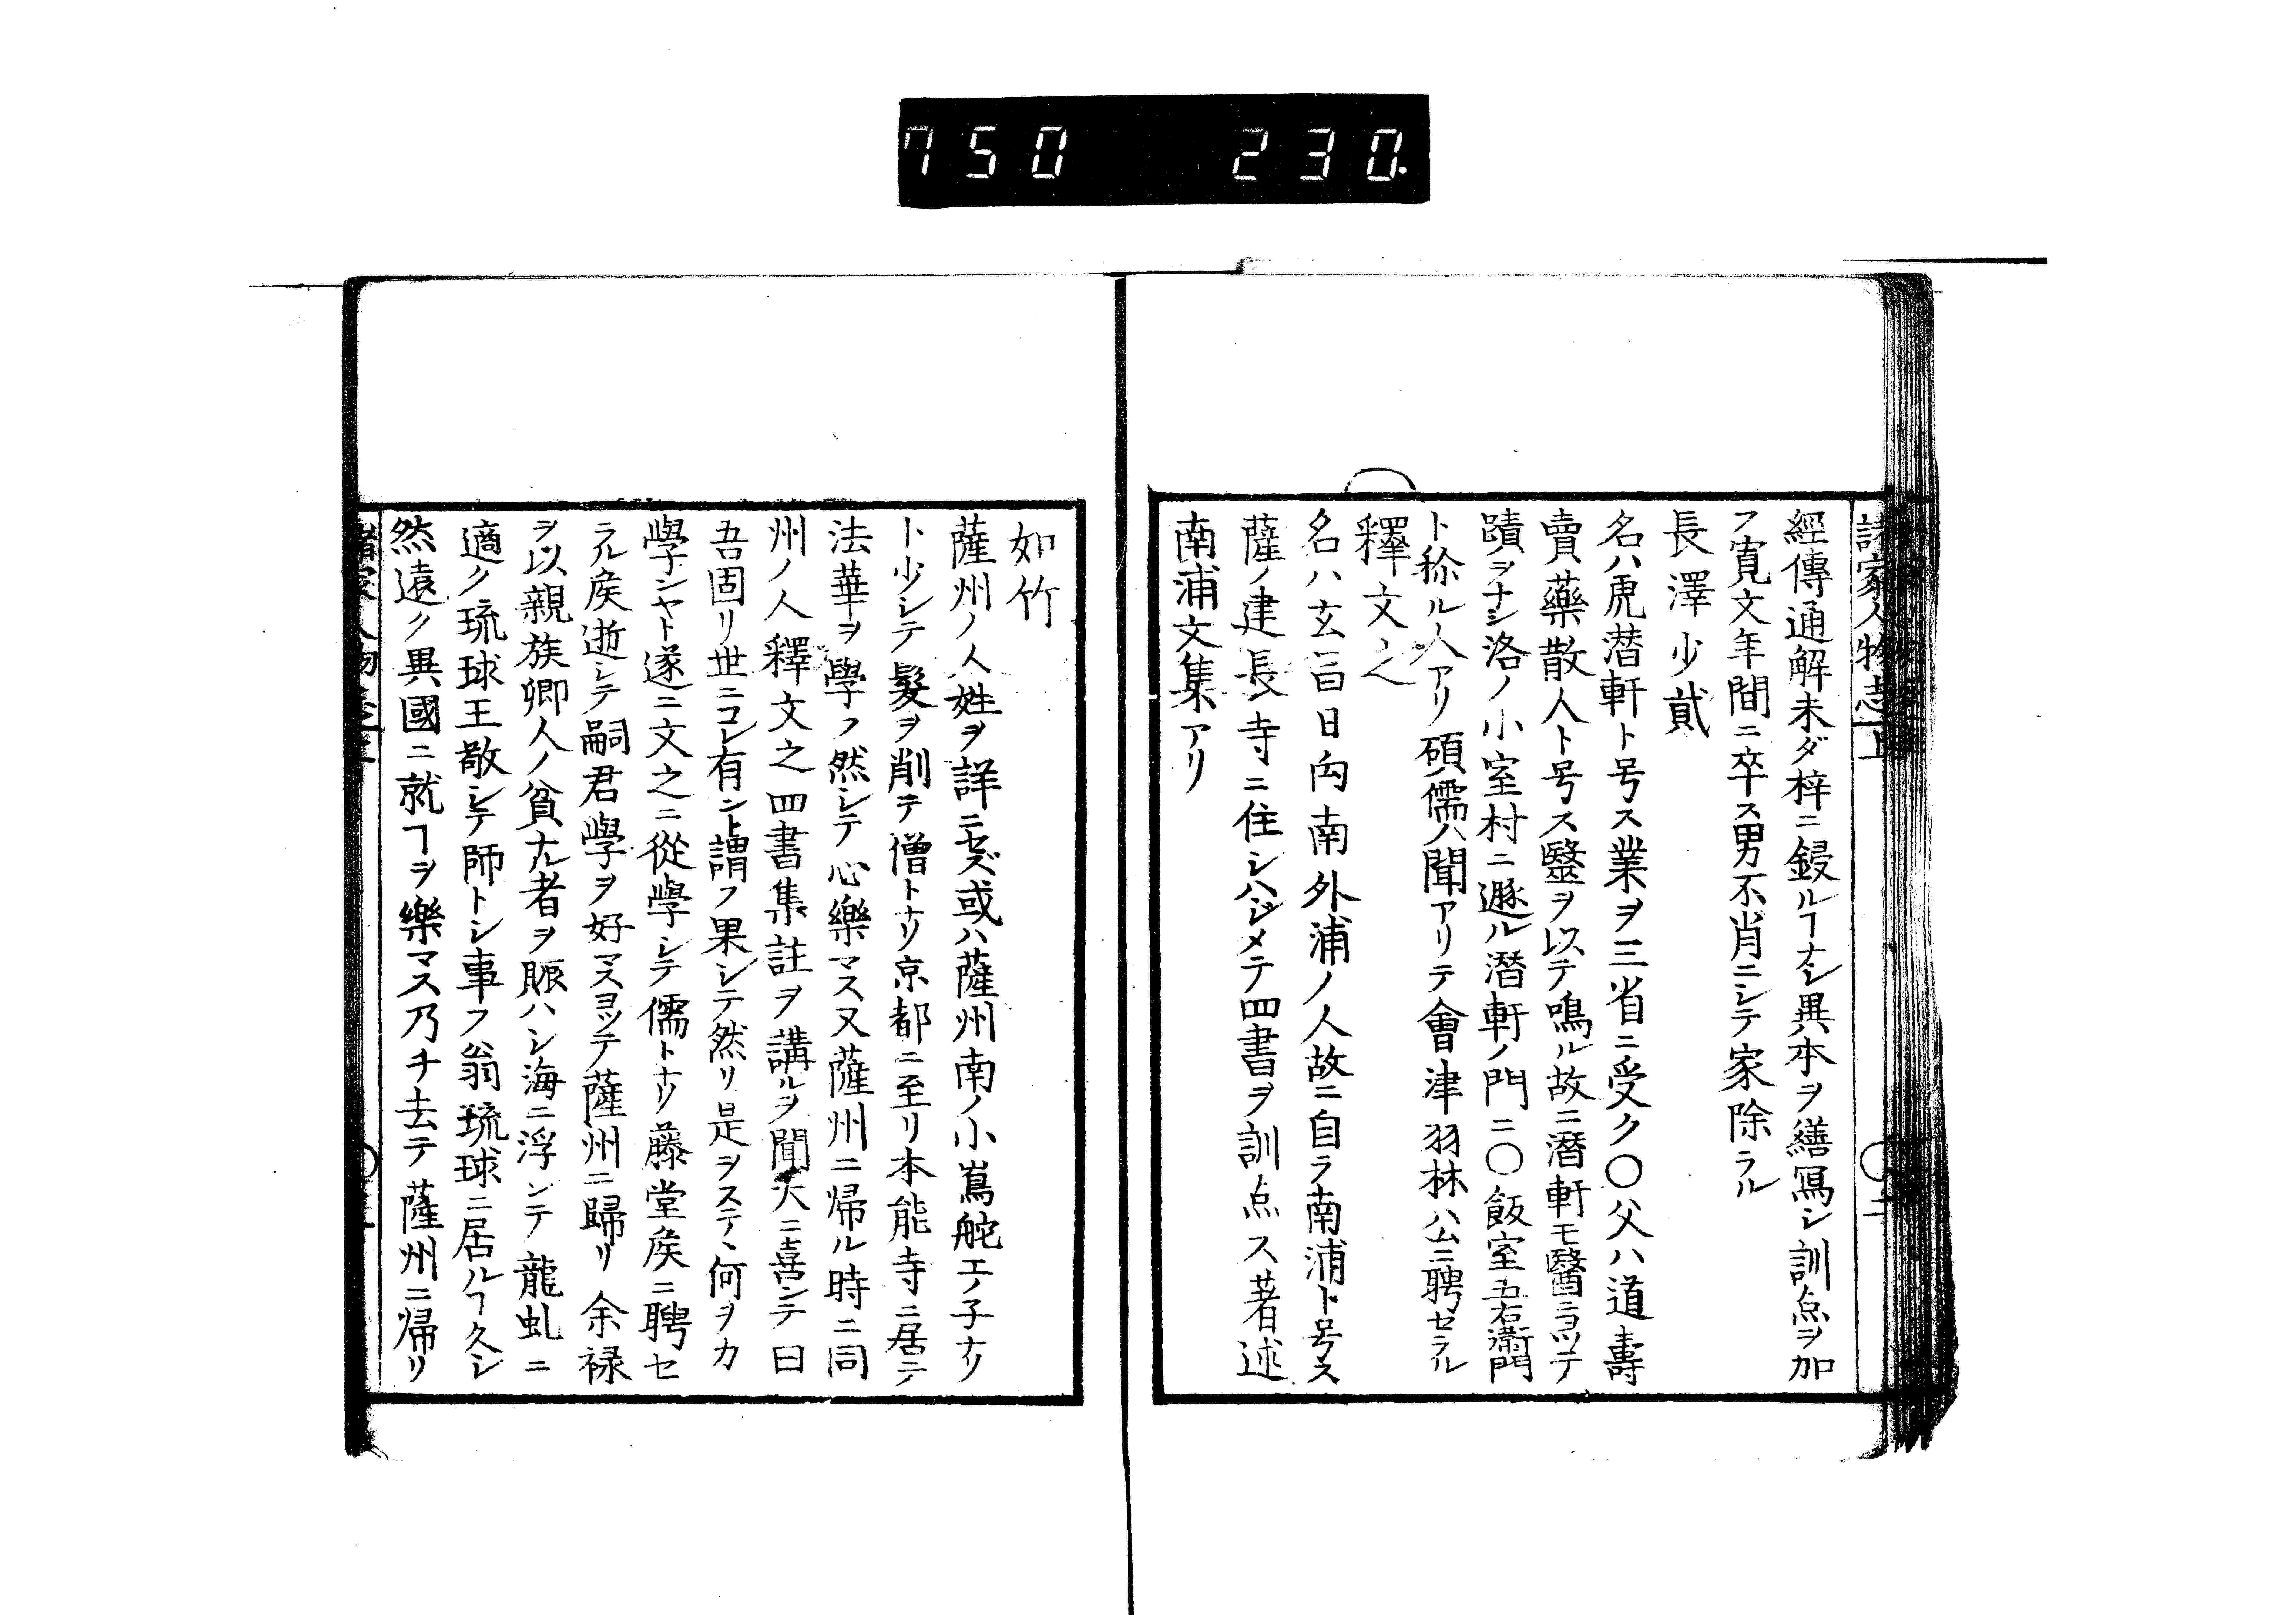 750 230.
諸家人物志上 〇二
經傳通解未ダ梓ニ鋟ルヿナシ異本ヲ繕寫シ訓点ヲ加
フ寛文年間ニ卒ス男不肖ニシテ家除ラル
長澤少貳
名ハ虎潜軒ト号ス業ヲ三省ニ受ク〇父ハ道壽
賣藥散人ト号ス毉ヲ以テ鳴ル故ニ潛軒モ醫ニヨツテ
蹟ヲナシ洛ノ小室村ニ遯ル潜軒ノ門ニ〇飯室五右衛門
ト称ル人アリ碩儒ノ聞アリテ會津羽林公ニ聘セラル
釋文之
名ハ玄昌日向南外浦ノ人故ニ自ラ南浦ト号ス
薩ノ建長寺ニ住シハジメテ四書ヲ訓点ス著述
南浦文集アリ
如竹
薩州ノ人姓ヲ詳ニセズ或ハ薩州南ノ小嶌舵エノ子ナリ
ト少シテ髮ヲ削テ僧トナリ京都ニ至リ本能寺ニ居テ
法華ヲ學フ然シテ心樂マス又薩州ニ帰ル時ニ同
州ノ人釋文之四書集註ヲ講ルヲ聞大ニ喜ンテ曰
吾固リ世ニコレ有ント謂フ果シテ然リ是ヲステヽ何ヲカ
學ンヤト遂ニ文之ニ從學シテ儒トナリ藤堂矦ニ聘セ
ラル矦逝シテ嗣君學ヲ好マスヨツテ薩州ニ歸リ余禄
ヲ以親族卿人ノ貧ナル者ヲ賑ハシ海ニ浮ンテ龍虬ニ
適ク琉球王敬シテ師トシ事フ翁琉球ニ居ルヿ久シ
然遠ク異國ニ就ヿヲ樂マス乃チ去テ薩州ニ帰リ